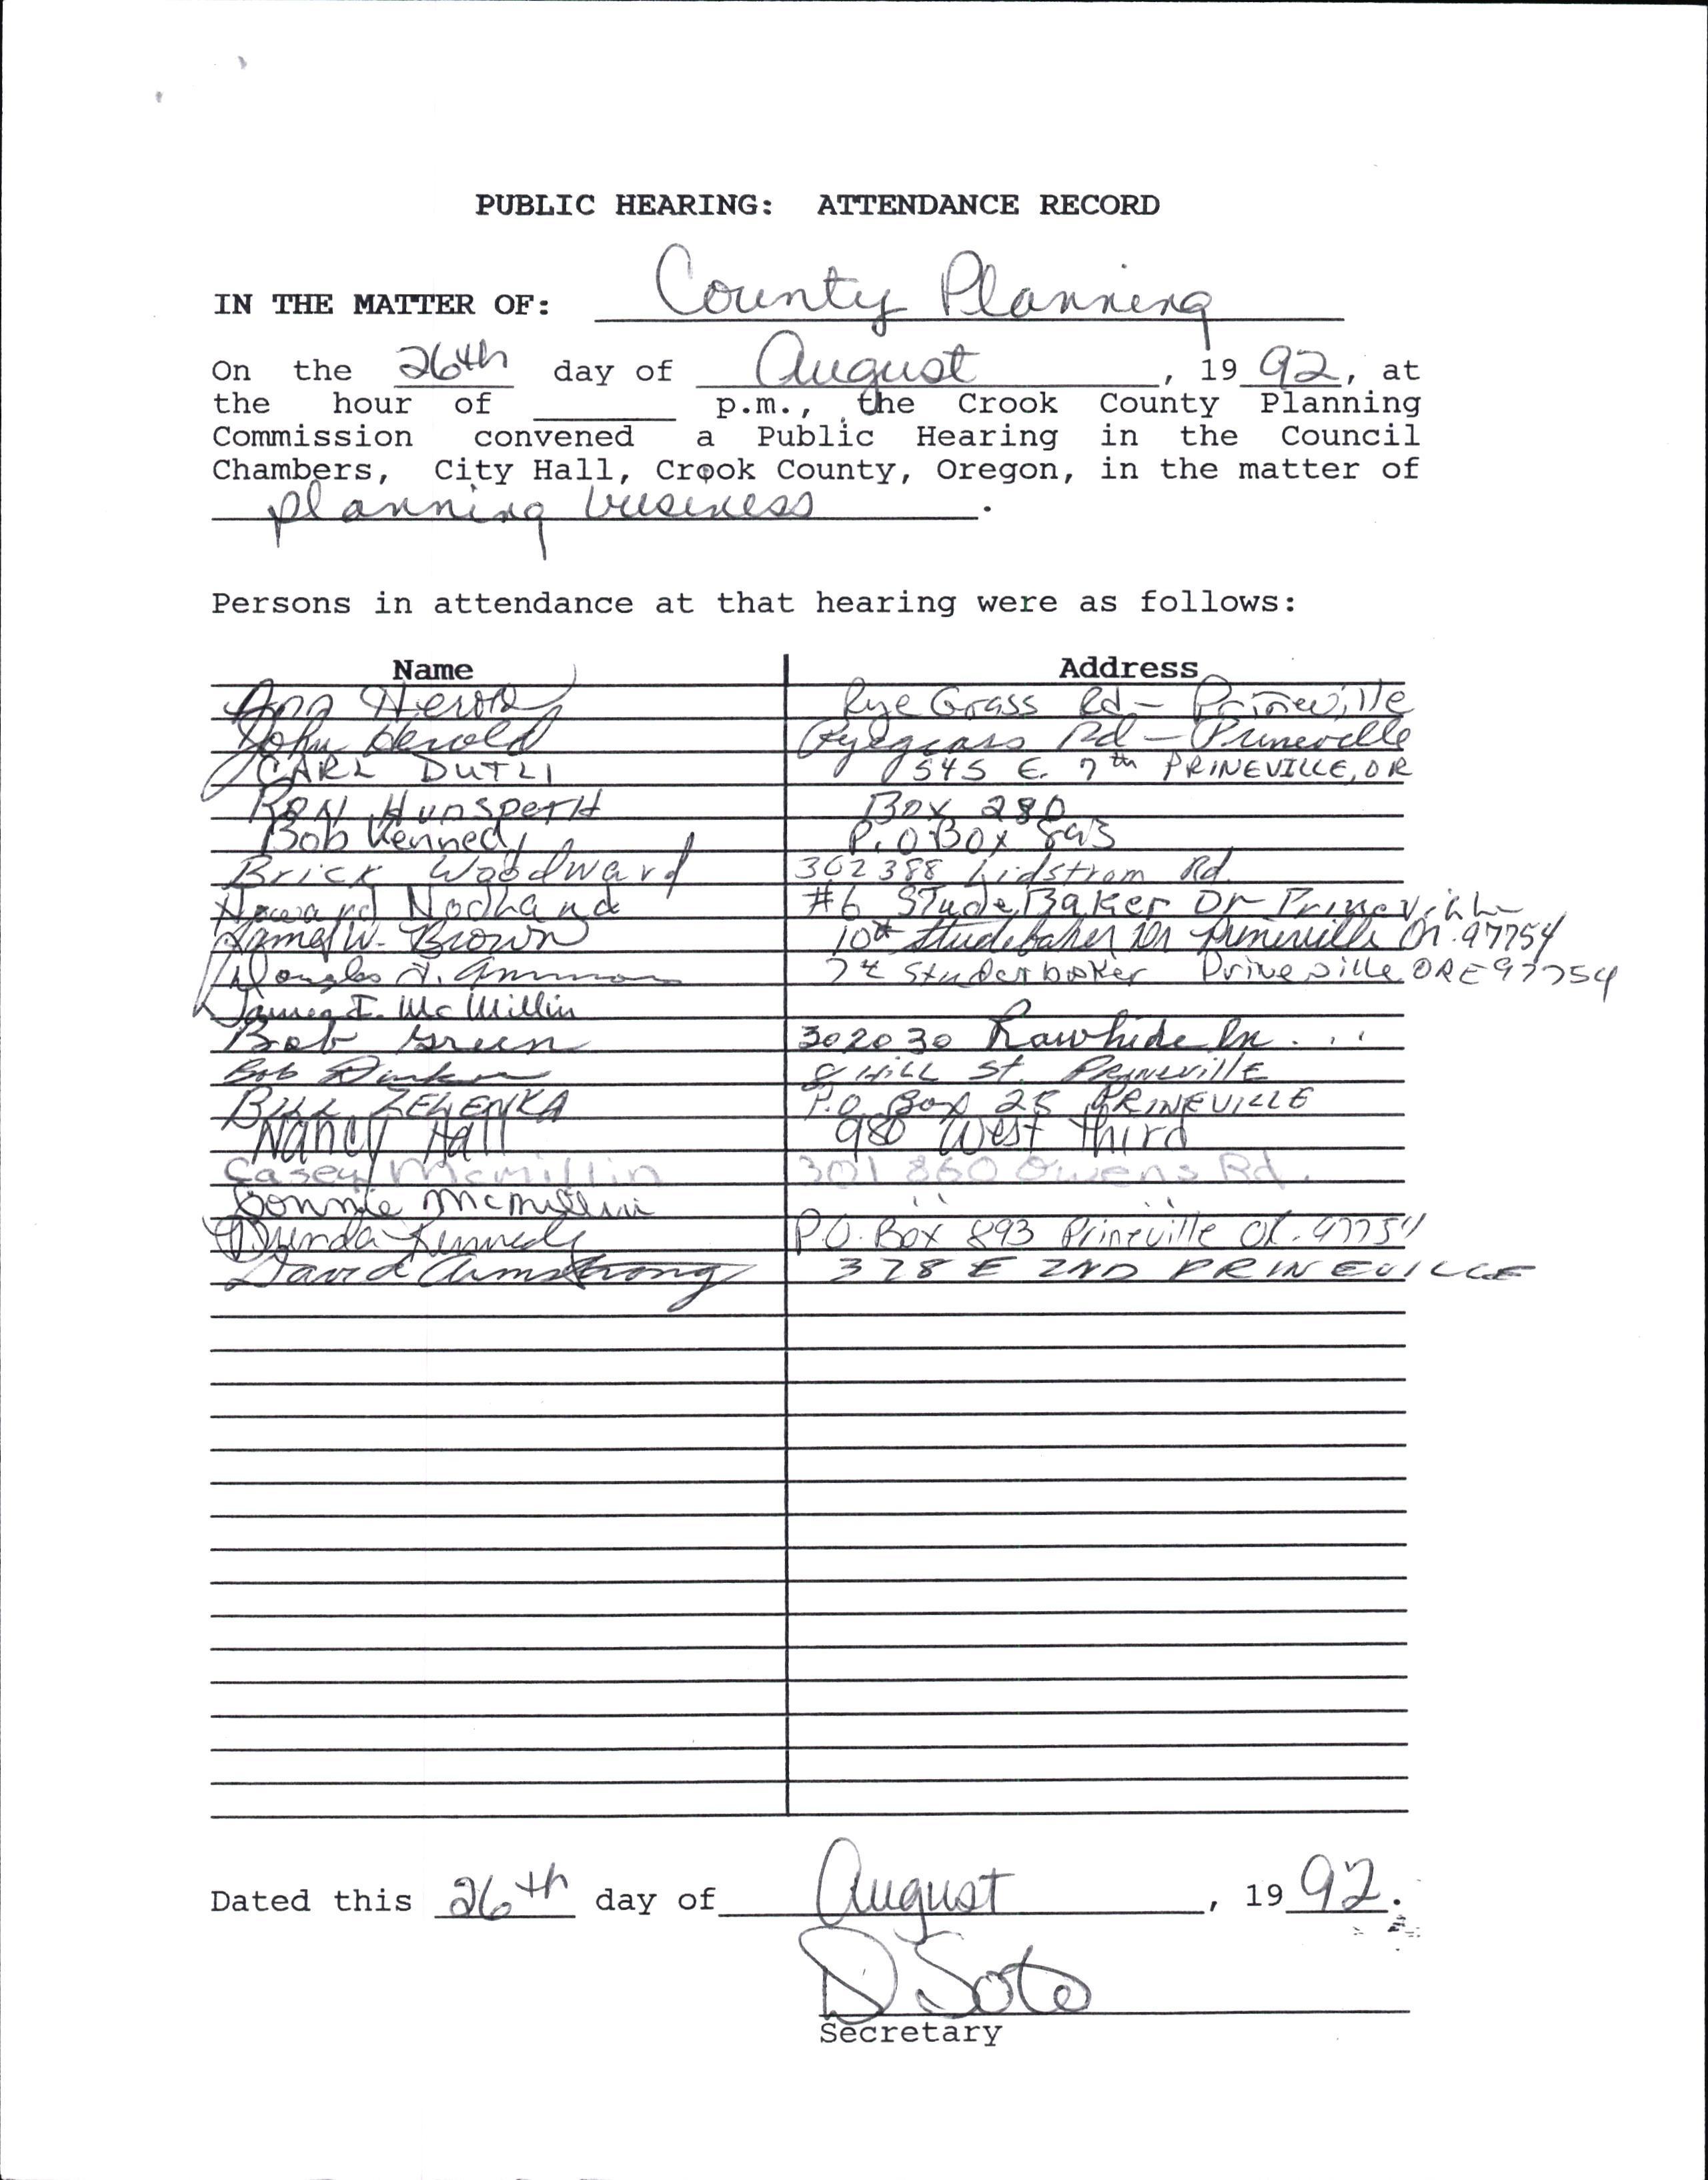 PUBLIC HEARING: ATTENDANCE RECORD
IN THE MATTER OF: County Planning
On the 26th day of August, 1992, at
the hour of ______ p.m., the Crook County Planning
Commission convened a Public Hearing in the Council
Chambers, City Hall, Crook County, Oregon, in the matter of
planning business.
Persons in attendance at that hearing were as follows:
Name Address
Ann Herold Rye Grass Rd - Prineville
John Herold Ryegrass Rd - Prineville
CARL DUTLI 545 E. 7th PRINEVILLE, OR
RON HunspetH Box 280
Bob Kennedy P.O. Box 893
Brick Woodward 362388 Lidstrom Rd.
Howard Nodland #6 StudeBaker Dr Prineville
James W. Brown 10# Studebaker Dr Prineville Or. 97754
Douglas Ammon 7# Studerbaker Prineville ORE 97754
James I. McMillin
Bob Green 302030 Rawhide Ln. . . '
Bob 8 Hill St. Prineville
BILL ZELENKA P.O. Box 25 PRINEVILLE
Nancy Hall 980 West Third
Casey Mcmillin 301 860 Owens Rd.
Bonnie McMillin " "
Brenda Kennedy P.O. Box 893 Prineville OR. 97754
David Armstrong 378 E 2ND PRINEVILLE
Dated this 26th day of August, 1992.
D Soto
Secretary